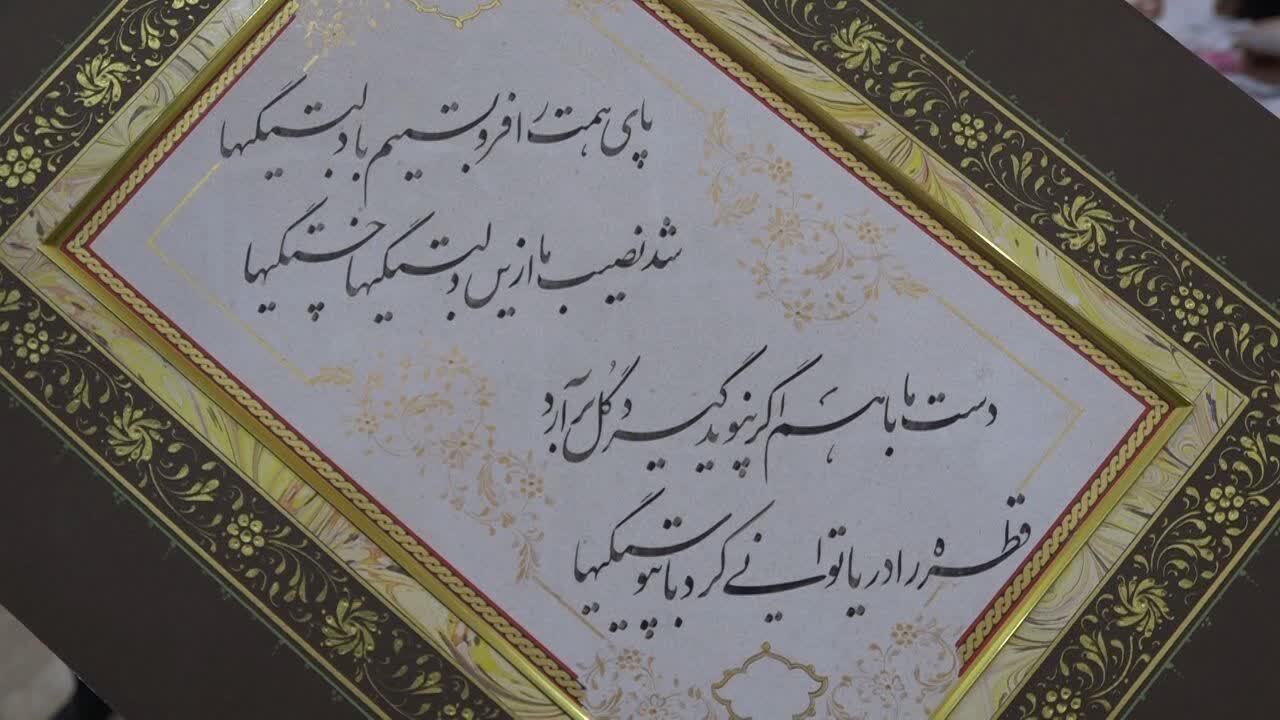 پای همت را فروبستیم با دلبستگیها
شد نصیب ما ازین دلبستگیها خستگیها
دست ما با هم اگر پیوند گیرد گل برآرد
قطره را دریا توانی کرد با پیوستگیها